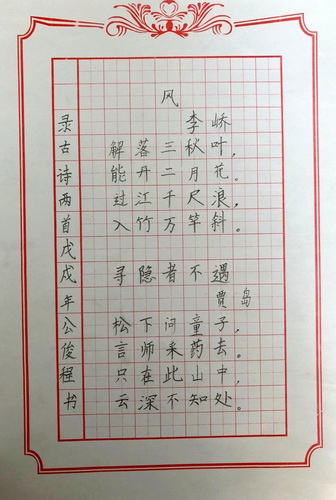 风
李峤
解落三秋叶,
能开二月花。
过江千尺浪,
入竹万竿斜。
寻隐者不遇
贾岛
松下问童子,
言师采药去。
只在此山中,
云深不知处。
录古诗两首戊戌年公俊程书